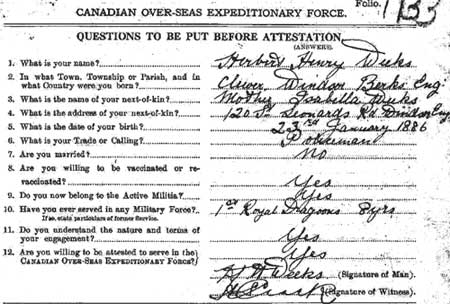 Folio. 1133
CANADIAN OVER-SEAS EXPEDITIONARY FORCE.
QUESTIONS TO BE PUT BEFORE ATTESTATION.
(ANSWERS).
1. What is your name? Herbert Henry Weeks
2. In what Town, Township or Parish, and in
what Country were you born? Clewer Windsor Berks Eng
3. What is the name of your next-of-kin? Mother Isabella Weeks
4. What is the address of your next-of-kin? 120 St Leonards Rd Windsor Eng
5. What is the date of your birth? 23rd January 1886
6. What is your Trade or Calling? Policeman
7. Are you married? No
8. Are you willing to be vaccinated or re-
vaccinated? Yes
9. Do you now belong to the Active Militia? Yes
10. Have you ever served in any Military Force? 1st Royal Dragoons 8 yrs
If so, state particulars of former Service.
11. Do you understand the nature and terms of
your engagement? Yes
12. Are you willing to be attested to serve in the Yes
CANADIAN OVER-SEAS EXPEDITIONARY FORCE?
H H Weeks (Signature of Man).
(Signature of Witness).